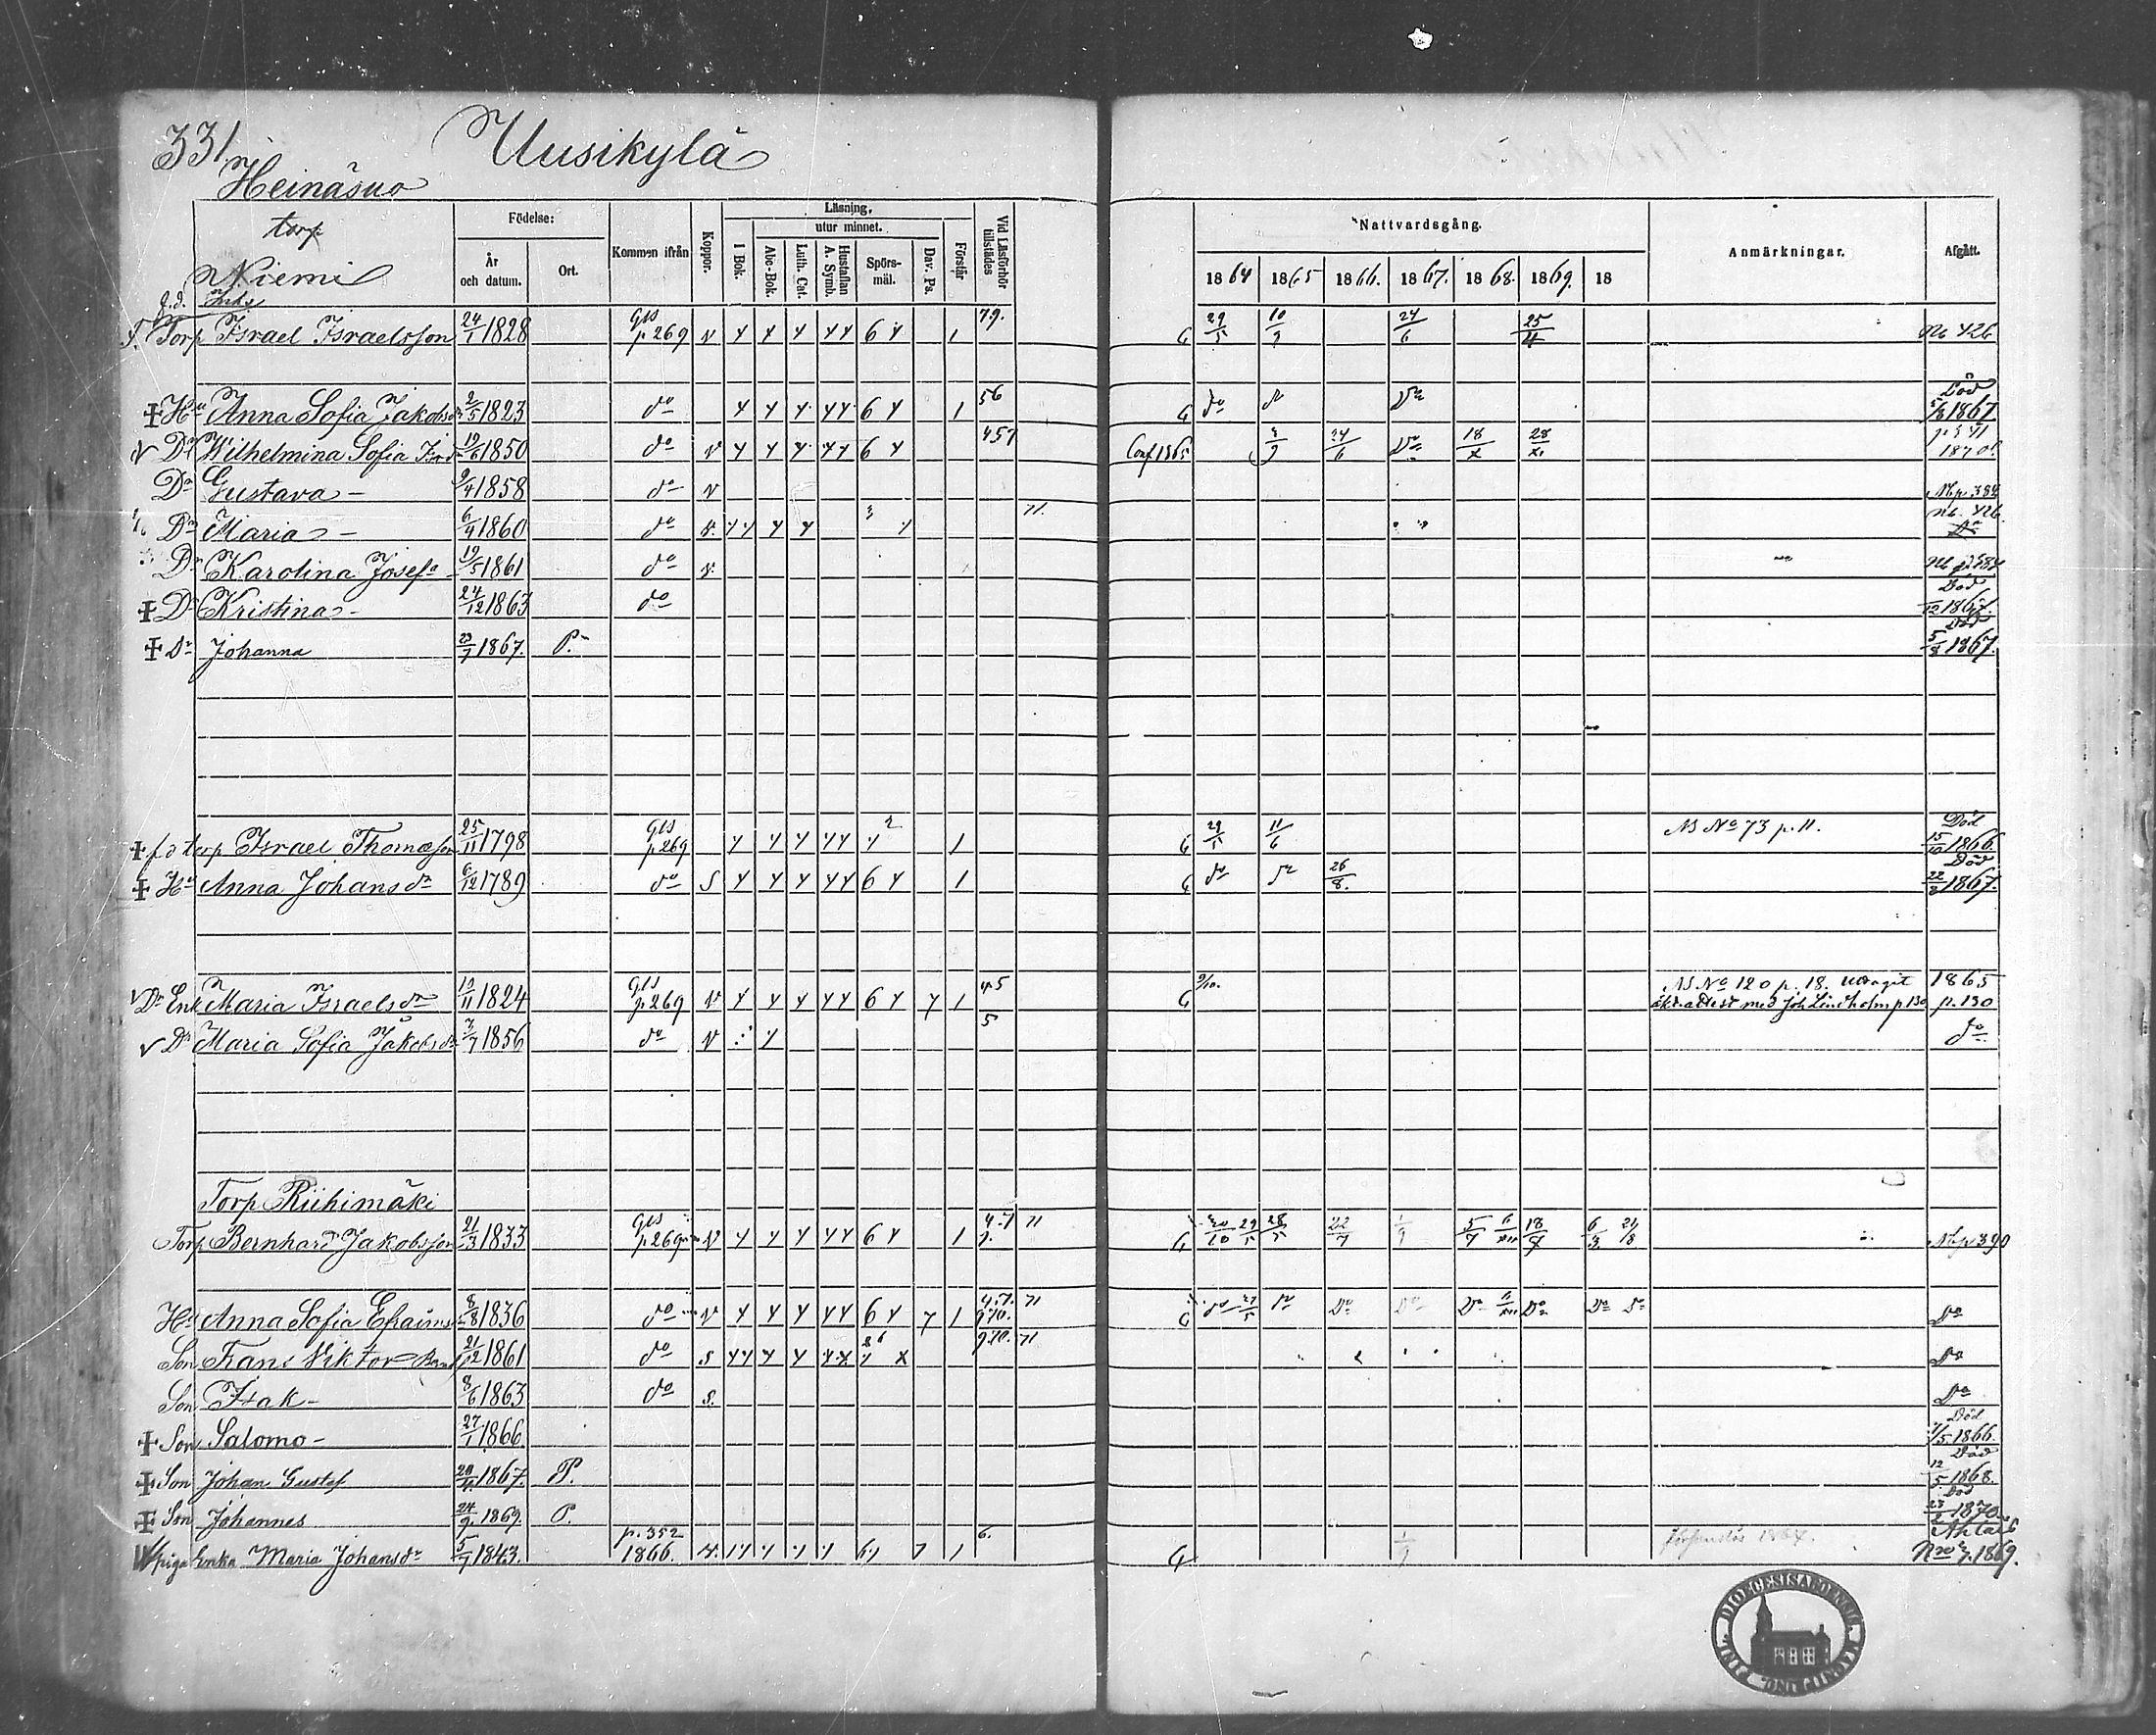 331 Uusikylä
Heinäsuo
torp
Niemi
Födelse: År och datum. Ort. Kommen ifrån Koppor. Läsning, I Bok. utur minnet. Abc-Bok. Luth. Cat. Hustaflan A. Symb. Spörs-mål. Dav. Ps. Förstår Vid Läsförhör tillstädes
Nattvardsgång. 1864 1865 1866. 1867. 1868. 1869. 18 Anmärkningar. Afgått.
f.d. Inhs
Torp Israel Israelsson 24/1 1828 Gls p 269 v 6 1 7.9. G 29/5 10/9 24/6 25/4 426
+ Hu Anna Sofia Jakobsdr 2/5 1823 do 6 1 56 G do do Do Död 5/8 1867
v Dr Wilhelmina Sofia Isrdr 19/6 1850 do v 6 457 Conf 1865 3/9 24/6 Do 18/x 28/xi 1870
Dr Gustava - 9/4 1858 do v Nb p 384
Dr Maria - 6/4 1860 do v. 71. 426 Do
Dr Karolina Josefa 19/5 1861 do v.
+ Dr Kristina - 24/12 1863 do Död /12 1867.
+ Dr Johanna 23/7 1867. P. Död 5/8 1867.
+ f d torp Israel Thomæson 25/11 1798 Gls p 269 1 G 29/5 11/6 NB No 73 p. 11. Död 15/10 1866.
+ Hu Anna Johansdr 6/12 1789 do S 6 1 G do do 26/8. Död 22/8 1867.
v Dr Enk Maria Israelsdr 19/11 1824 Gls p 269 v 6 1 45 G 9/10. NB No 120 p. 18. uttagit 1865
äkt. attest med Joh Lindholm p 130 p. 130
v Dr Maria Sofia Jakobsdr 7/7 1856 do v 5 do
Torp Riihimäki
Torp Bernhard Jakobsson 21/3 1833 Gls p 269 v 6 1 4.7 9. 71 G 30/10 29/5 28/5 22/7 1/9 5/7 6/xii 18/7 6/3 21/8 Nb p 390
Hu Anna Sofia Efraimsdr 8/8 1836 do v 6 1 4.7. 9 70. 71 G do 27/5 Do Do Do Do Do Do Do
Son Frans Viktor Bernh 21/12 1861 do s 9.70. 71 Do
Son Isak - 8/6 1863 do s. Do
+ Son Salomo - 27/1 1866. Död 1/5 1866.
+ Son Johan Gustaf 20/4 1867. P. Död 12/5 1868.
+ Son Johannes 24/9. 1869. P. Död 23/2 1870
piga Enka Maria Johansdr 5/7 1843. p. 352 1866. 6 1 6. G 1/9 1869.
DIOECESIS ABOENSIS